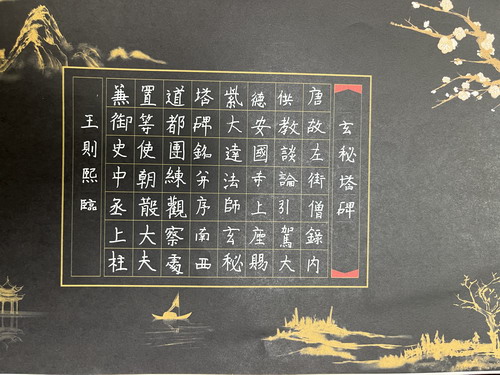 玄秘塔碑
唐故左街僧錄內
供教談論引駕大
德安國寺上座賜
紫大達法師玄秘
塔碑銘并序南西
道都團練觀察處
置等使朝散大夫
兼御史中丞上柱
王則熙臨